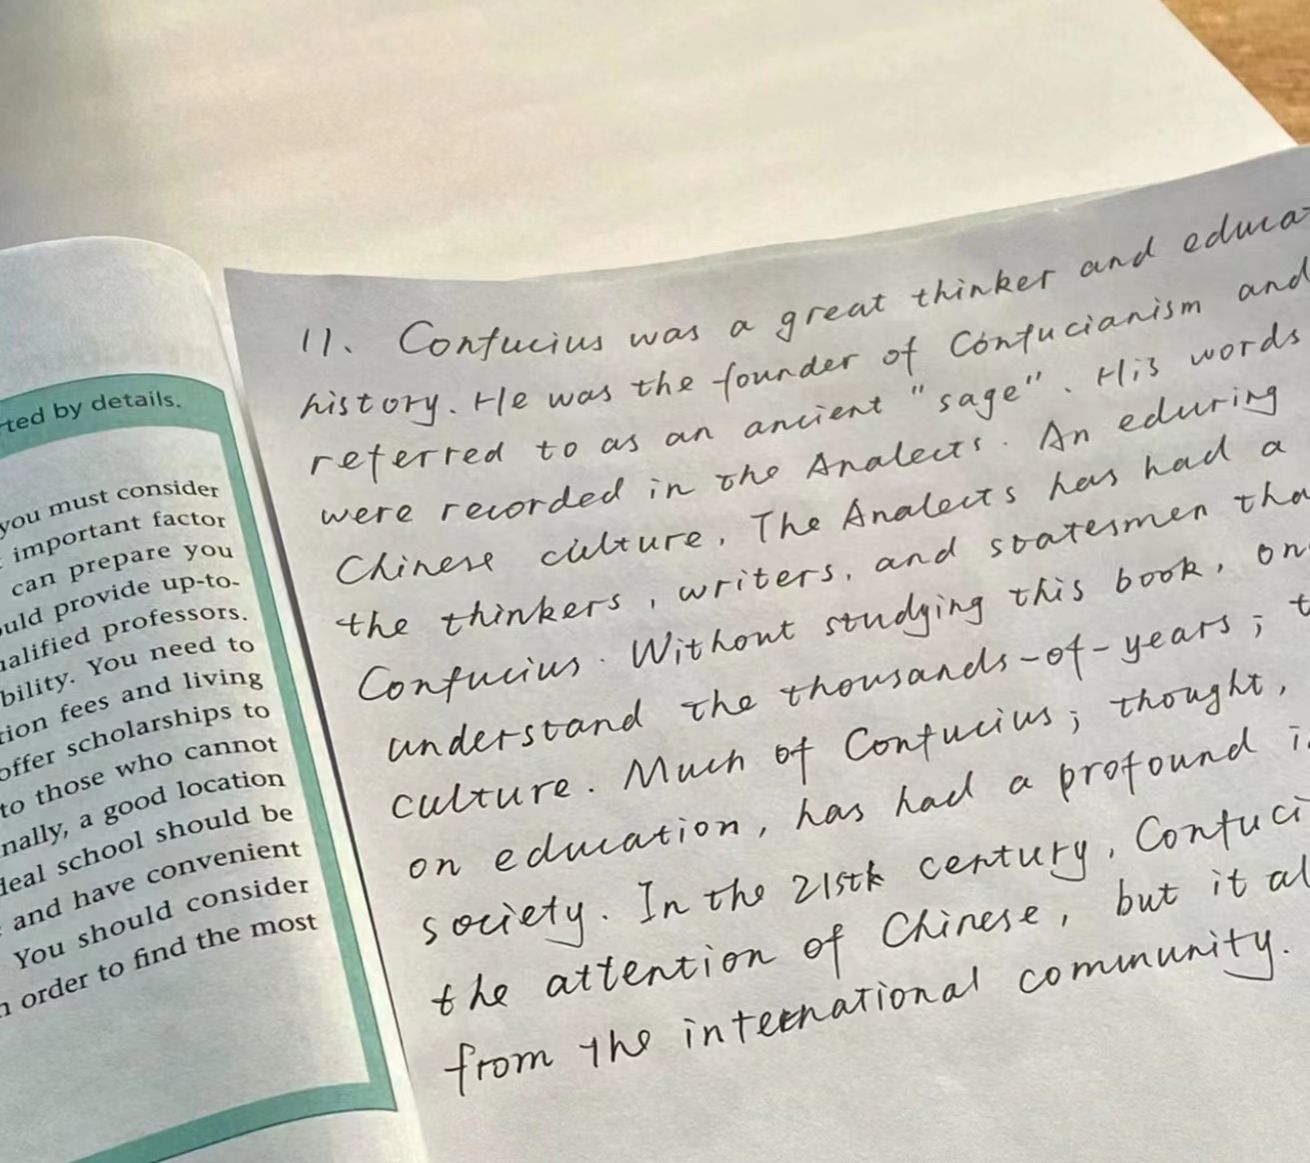 rted by details.
you must consider
important factor
can prepare you
uld provide up-to-
alified professors.
bility. You need to
tion fees and living
offer scholarships to
to those who cannot
nally, a good location
deal school should be
and have convenient
You should consider
n order to find the most
11. Confucius was a great thinker and educat
history. He was the founder of Confucianism and
referred to as an ancient "sage". His words
were recorded in the Analects. An eduring
Chinese culture. The Analects has had a
the thinkers, writers, and statesmen tha
Confucius. Without studying this book, on
understand the thousands-of-years; t
culture. Much of Confucius; thought,
on education, has had a profound i
society. In the 21stk century, Confuci
the attention of Chinese, but it al
from the international community.